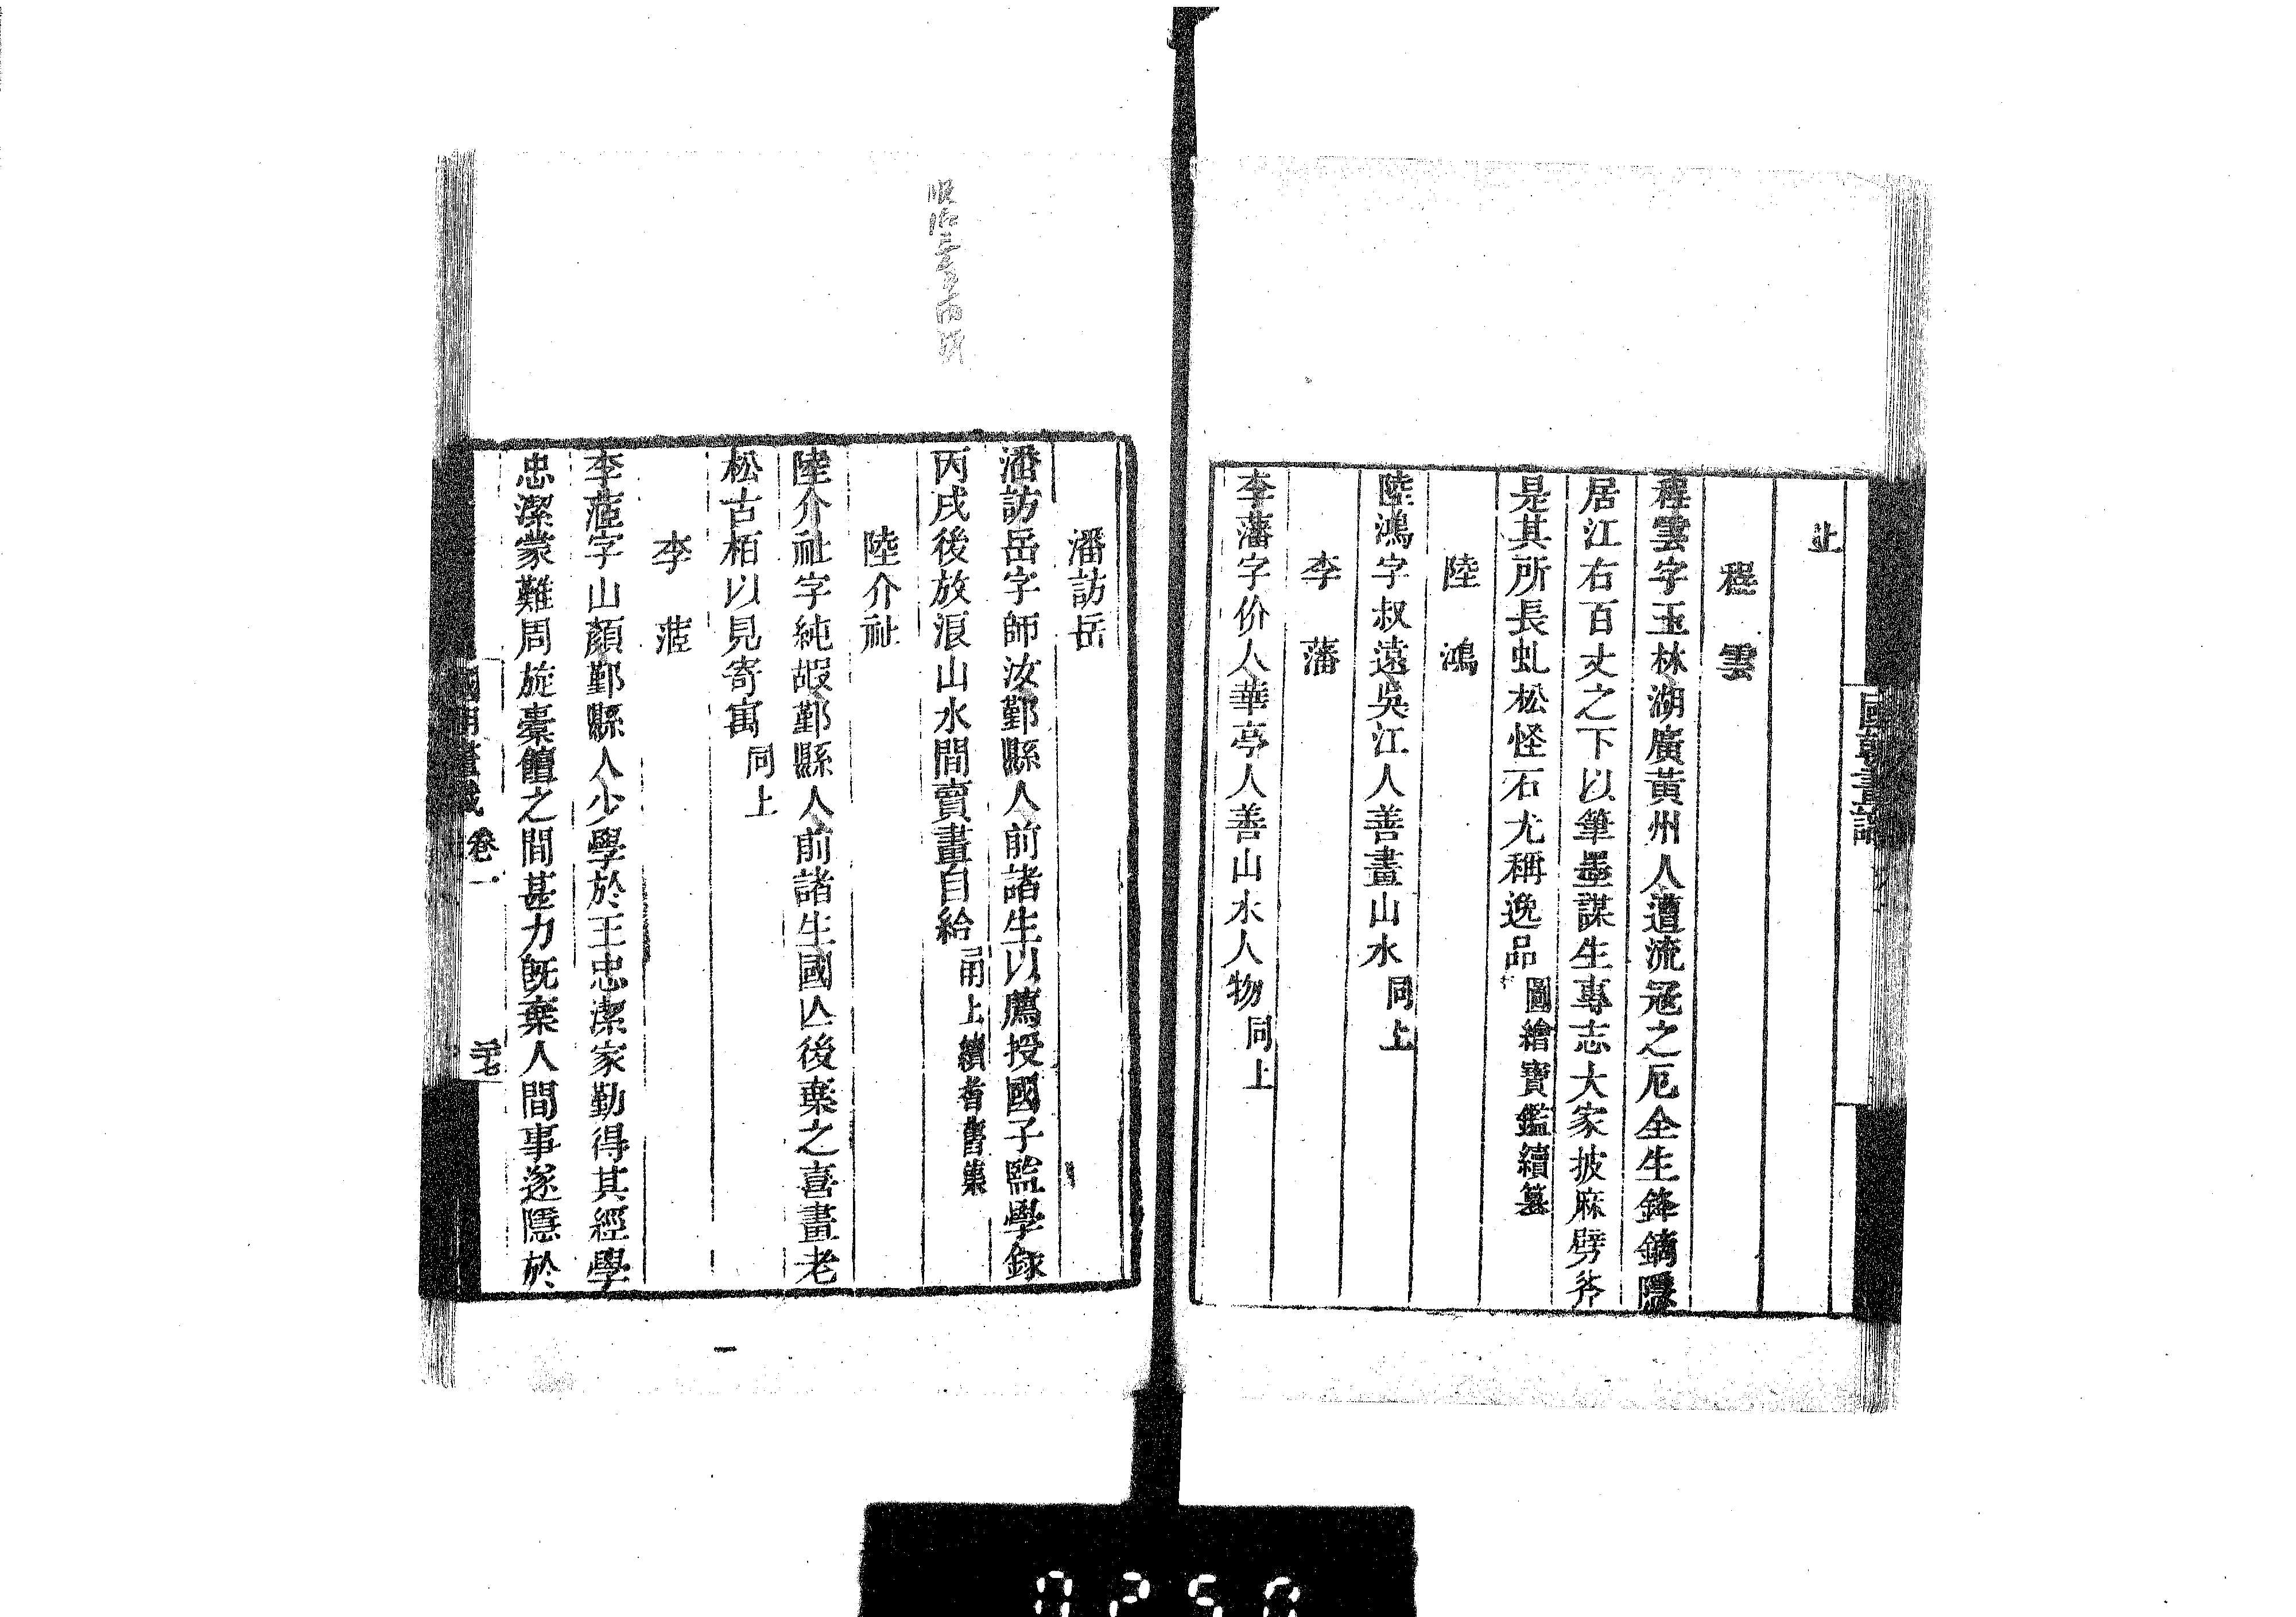 止
程雲
程雲字玉林湖廣黃州人遭流寇之厄全生鋒鏑隱
居江右百丈之下以筆墨謀生專志大家披麻劈斧
是其所長虬松怪石尤稱逸品圖繪寶鑑續纂
陸鴻
陸鴻字叔遠吳江人善畫山水同上
李藩
李藩字价人華亭人善山水人物同上
潘訪岳
潘訪岳字師汝鄞縣人前諸生以薦授國子監學錄
丙戌後放浪山水間賣畫自給甬上續耆舊集
陸介祉
陸介祉字純嘏鄞縣人前諸生國亾後棄之喜畫老
松古栢以見寄寓同上
李𦶜
李𦶜字山顏鄞縣人少學於王忠潔家勤得其經學
忠潔蒙難周旋橐饘之間甚力旣棄人間事遂隱於
卷一
三十七
順治三年丙戌
0250